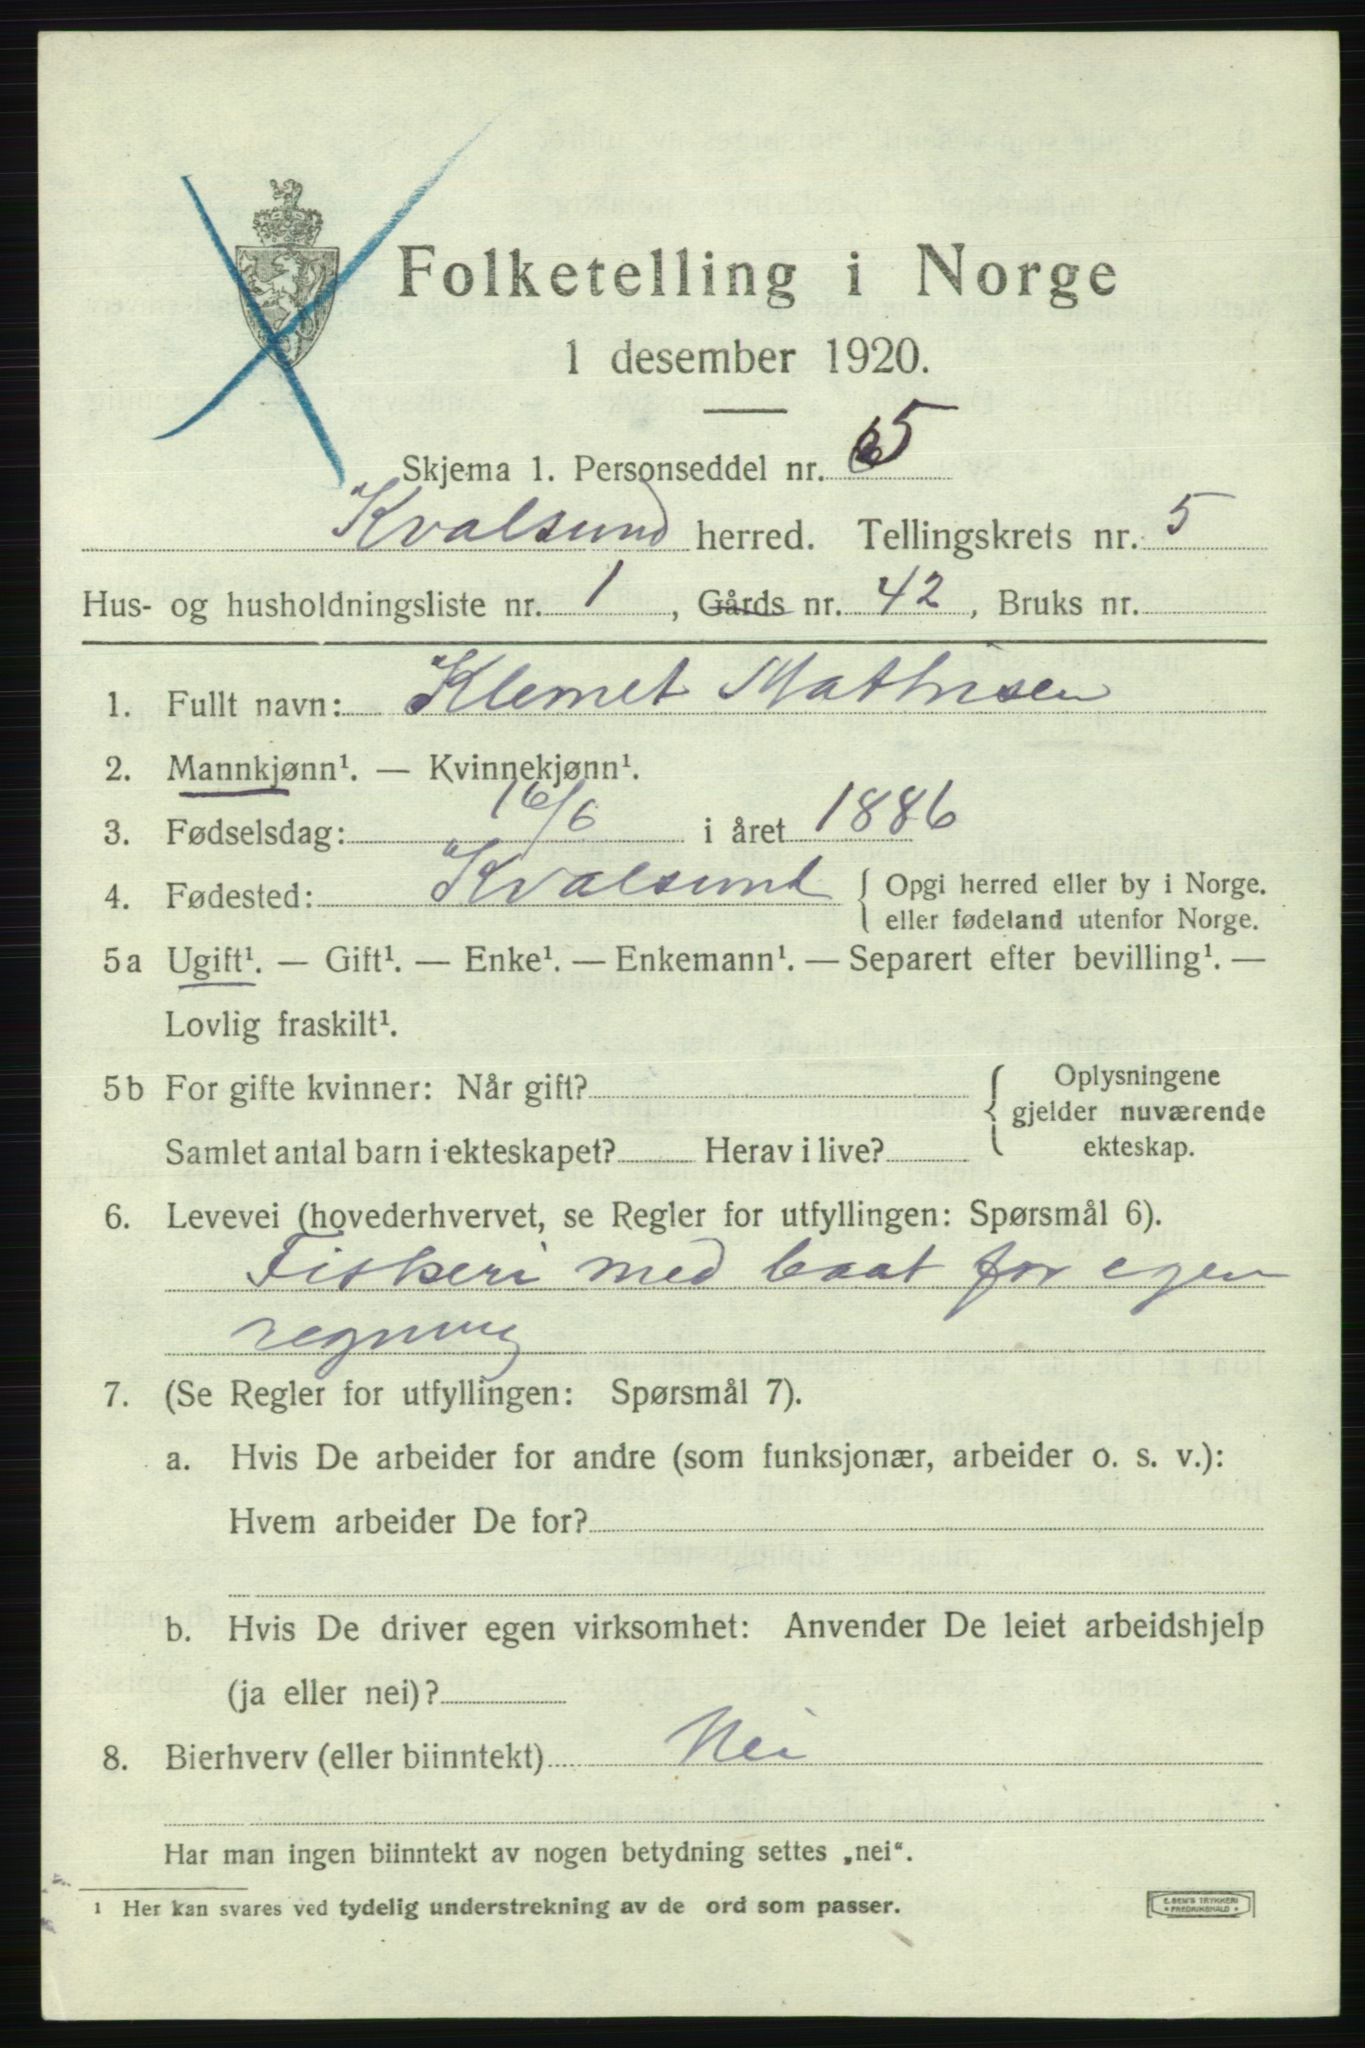 Folketelling i Norge
1 desember 1920.
Skjema 1. Personseddel nr. 5
Kvalsund herred. Tellingskrets nr. 5
Hus- og husholdningsliste nr. 1, Gårds nr. 42, Bruks nr.
1. Fullt navn: Klemet Mathisen
2. Mannkjønn¹. — Kvinnekjønn¹.
3. Fødselsdag: 16/6 i året 1886
4. Fødested: Kvalsund { Opgi herred eller by i Norge.
eller fødeland utenfor Norge.
5a Ugift¹. — Gift¹. — Enke¹. — Enkemann¹. — Separert efter bevilling¹. —
Lovlig fraskilt¹.
5b For gifte kvinner: Når gift? { Oplysningene
gjelder nuværende
Samlet antal barn i ekteskapet? Herav i live? ekteskap.
6. Levevei (hovederhvervet, se Regler for utfyllingen: Spørsmål 6).
Fiskeri med baat for egen
regning
7. (Se Regler for utfyllingen: Spørsmål 7).
a. Hvis De arbeider for andre (som funksjonær, arbeider o. s. v.):
Hvem arbeider De for?
b. Hvis De driver egen virksomhet: Anvender De leiet arbeidshjelp
(ja eller nei)?
8. Bierhverv (eller biinntekt) Nei
Har man ingen biinntekt av nogen betydning settes „nei“.
¹ Her kan svares ved tydelig understrekning av de ord som passer.
E. SEM'S TRYKKERI
• FREDRIKSHALD •